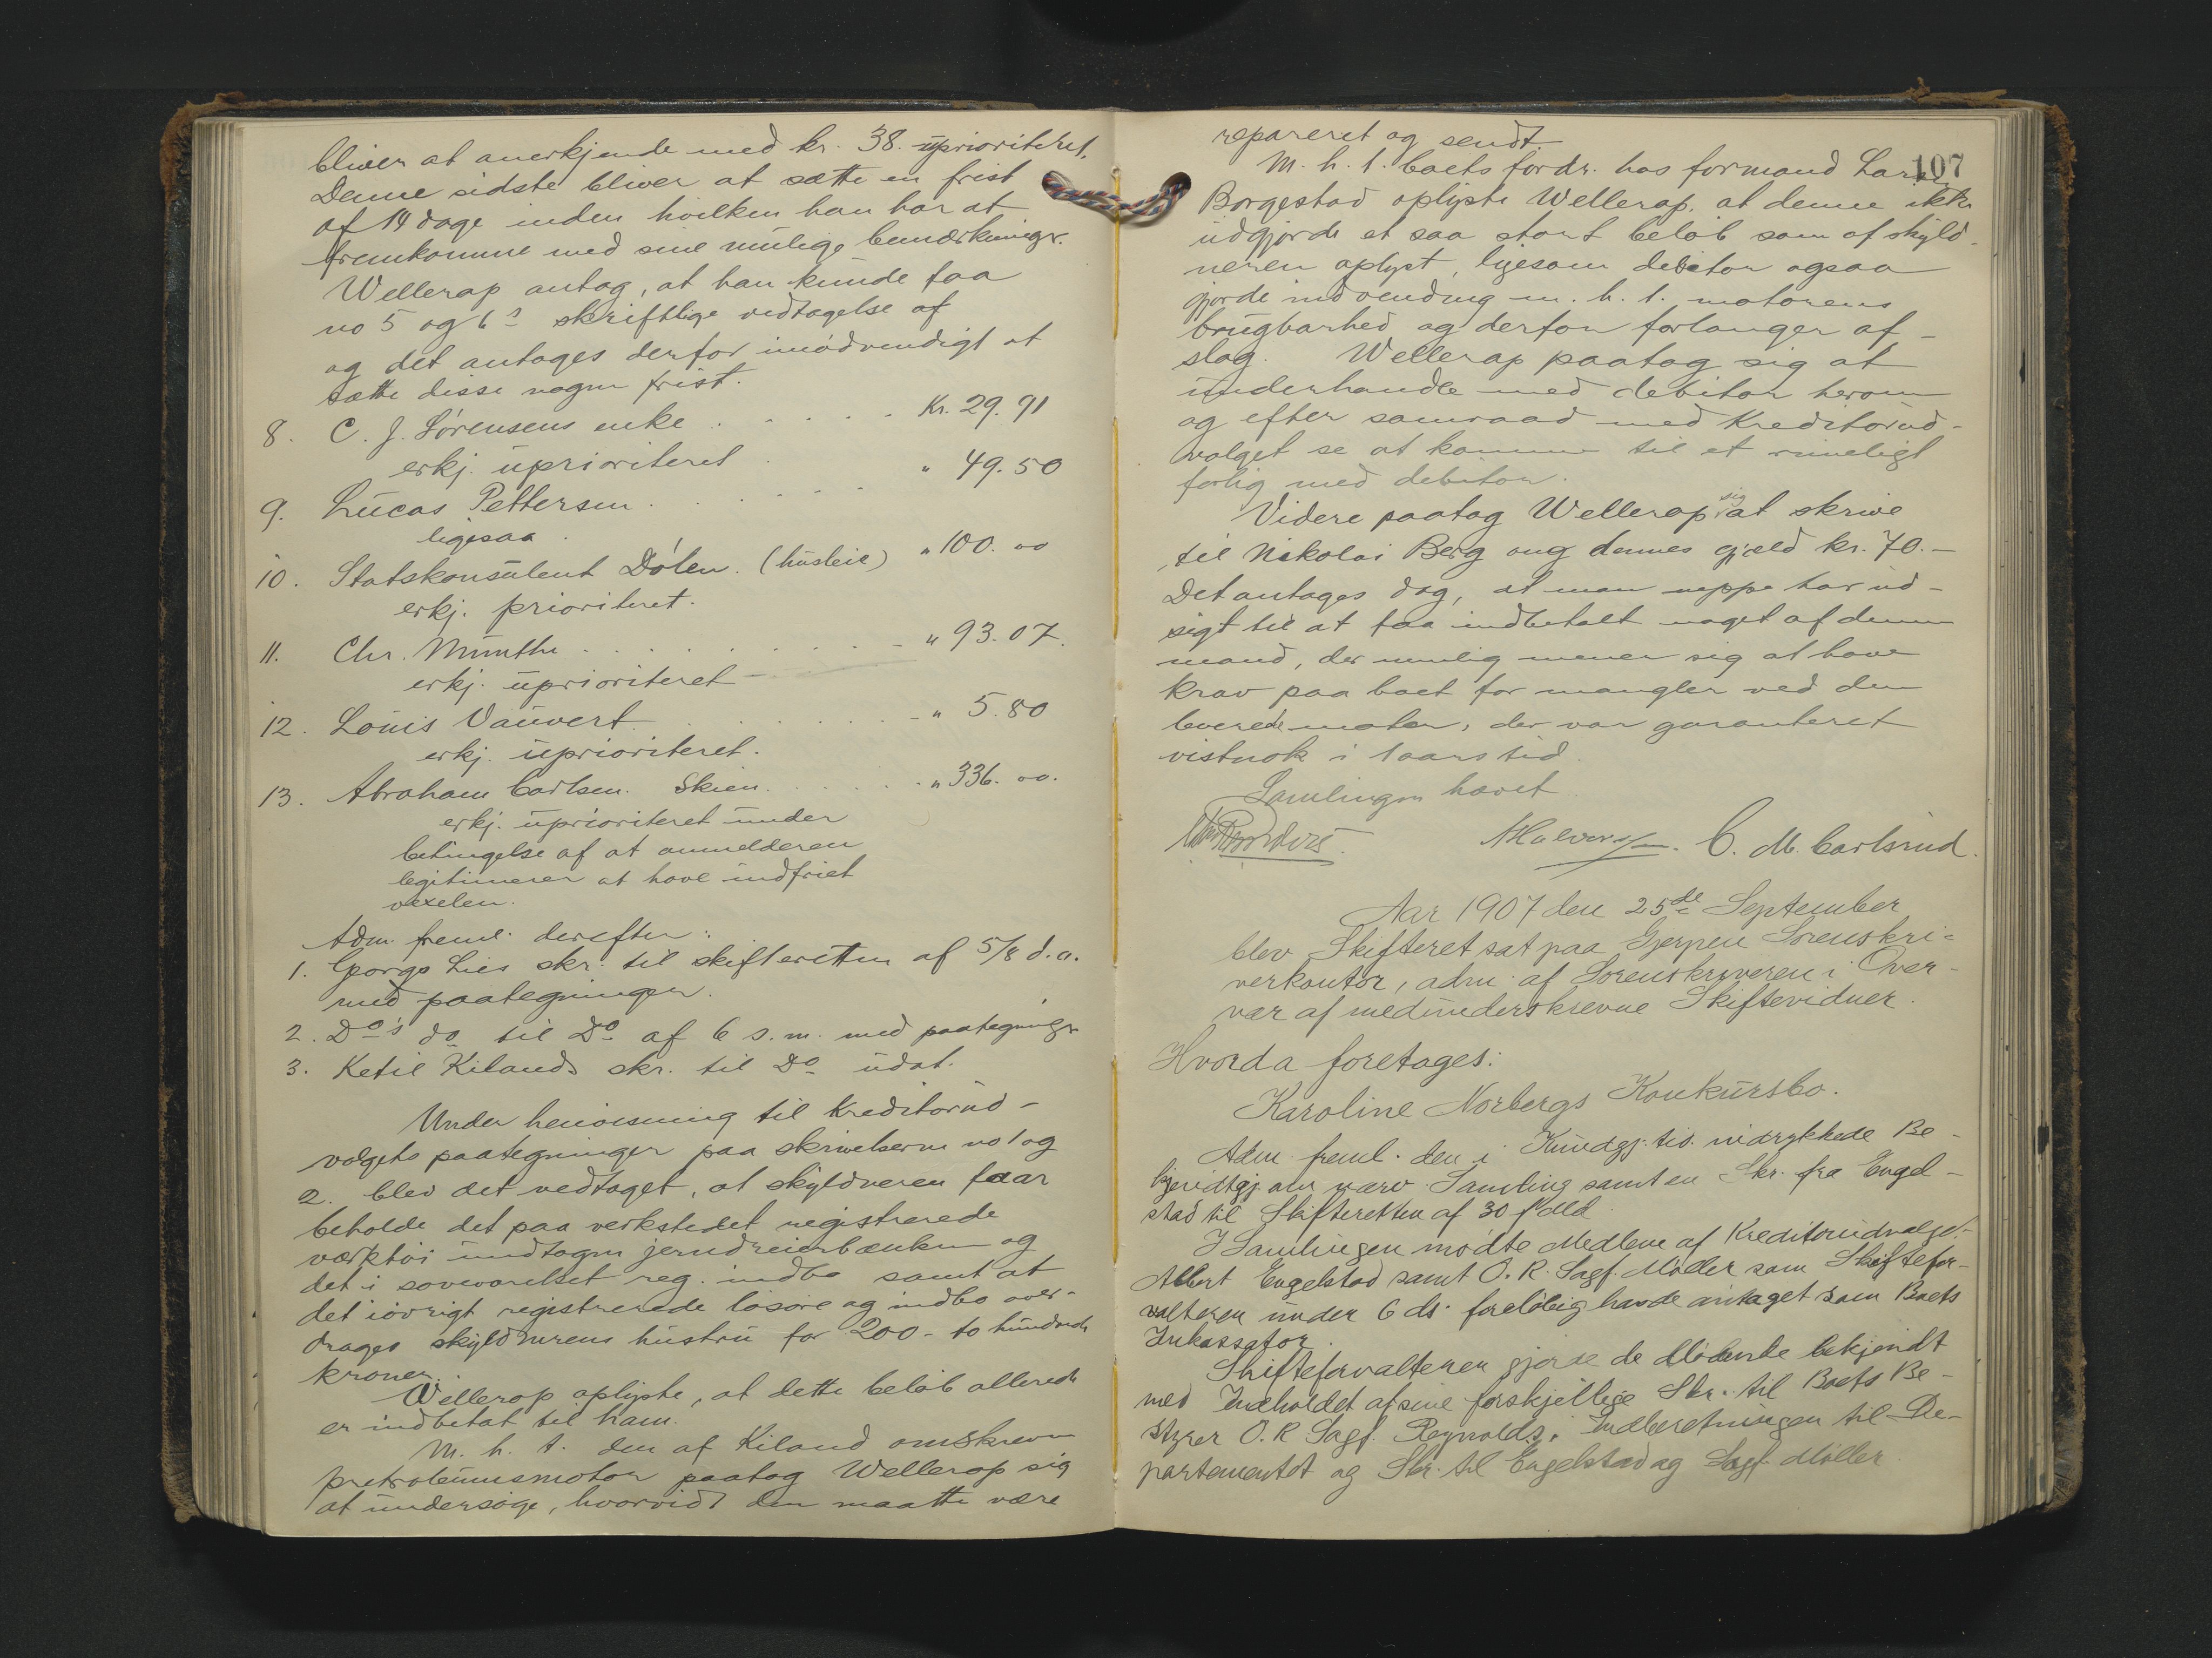 bliver at anerkjende med kr. 38. uprioriteret.
Denne sidste bliver at sætte en frist
af 14 dage inden hvilken han har at
fremkomme med sine mulige bemærkninger.
Wellerop antog, at han kunde faa
no 5 og 6s skriftlige vedtagelse af
og det antages derfor unødvendigt at
sætte disse nogen frist.
8. C. J. Sørensens enke . . . . . Kr. 29.91
erkj. uprioriteret
9. Lucas Pettersen . . . . . " 49.50
ligesaa.
10. Statskonsulent Dølen. (husleie) " 100.00
erkj. prioriteret.
11. Chr. Munthe . . . . . " 93.07.
erkj. uprioriteret
12. Louis Vauvert . . . . . " 5.80
erkj. uprioriteret.
13. Abraham Carlsen. Skien . . . . . " 336.00.
erkj. uprioriteret under
betingelse af at anmelderen
legitimerer at have indfriet
vexelen.
Adm. freml. derefter:
1. Georg Lies skr. til skifteretten af 5/8 d.a.
med paategninger.
2. Do's do til Do af 6 s.m. med paategninger
3. Ketil Kilands skr. til Do udat.
Under henvisning til Kreditorud-
valgets paategninger paa skrivelserne no 1 og
2. blev det vedtaget, at skyldneren faar
beholde det paa verkstedet registrerede
værktøi undtagen jerndreierbænken og
det i soveværelset reg. indbo samt at
det iøvrigt registrerede løsøre og indbo over-
drages skyldnerens hustru for 200 - to hundrede
kroner.
Wellerop oplyste, at dette beløb allerede
er indbetat til ham.
M. h. t. den af Kiland omskrevne
petroleumsmotor paatog Wellerop sig
at undersøge, hvorvidt den maatte være
107
repareret og sendt.
M. h. t. boets fordr. hos formand
Borgestad oplyste Wellerop, at denne ikke
udgjorde et saa stort beløb som af skyld-
neren oplyst, ligesom debitor ogsaa
gjorde indvending m. h. t. motorens
brugbarhed og derfor forlanger af-
slag. Wellerop paatog sig at
underhandle med debitor herom
og efter samraad med Kreditorud-
valget se at komme til et rimeligt
forlig med debitor.
Videre paatog Wellerop sig at skrive
til Nikolai Berg ang dennes gjæld kr. 70.-
Det antages dog, at man neppe har ud-
sigt til at faa indbetalt noget af denne
mand, der nemlig mener sig at have
krav paa boet for mangler ved den
leverede motor, der var garanteret
vistnok i 1 aars tid.
Samlingen hævet.
AHalvorsen. C. M. Carlsrud.
Aar 1907 den 25de September
blev Skifteret sat paa Gjerpen Sorenskri-
verkontor, adm. af Sorenskriveren i Over-
vær af medunderskrevne Skiftevidner.
Hvorda foretages:
Karoline Norbergs Konkursbo.
Adm. freml. den i Kundgj. tid. indrykkede Be-
kjendtgj. om nærv. Samling samt en Skr. fra Engel-
stad til Skifteretten af 30 f. Md.
I Samlingen mødte Medlem af Kreditorudvalget
Albert Engelstad samt O. R. Sagf. Møller som Skiftefor-
valteren under 6 ds. foreløbig havde antaget som Boets
Inkassator.
Skifteforvalteren gjorde de Mødende bekjendt
med Indholdet af sine forskjellige Skr. til Boets Be-
styrer O. R Sagf. Reynolds, Indberetningen til De-
partementet og Skr. til Engelstad og Sagf. Møller.